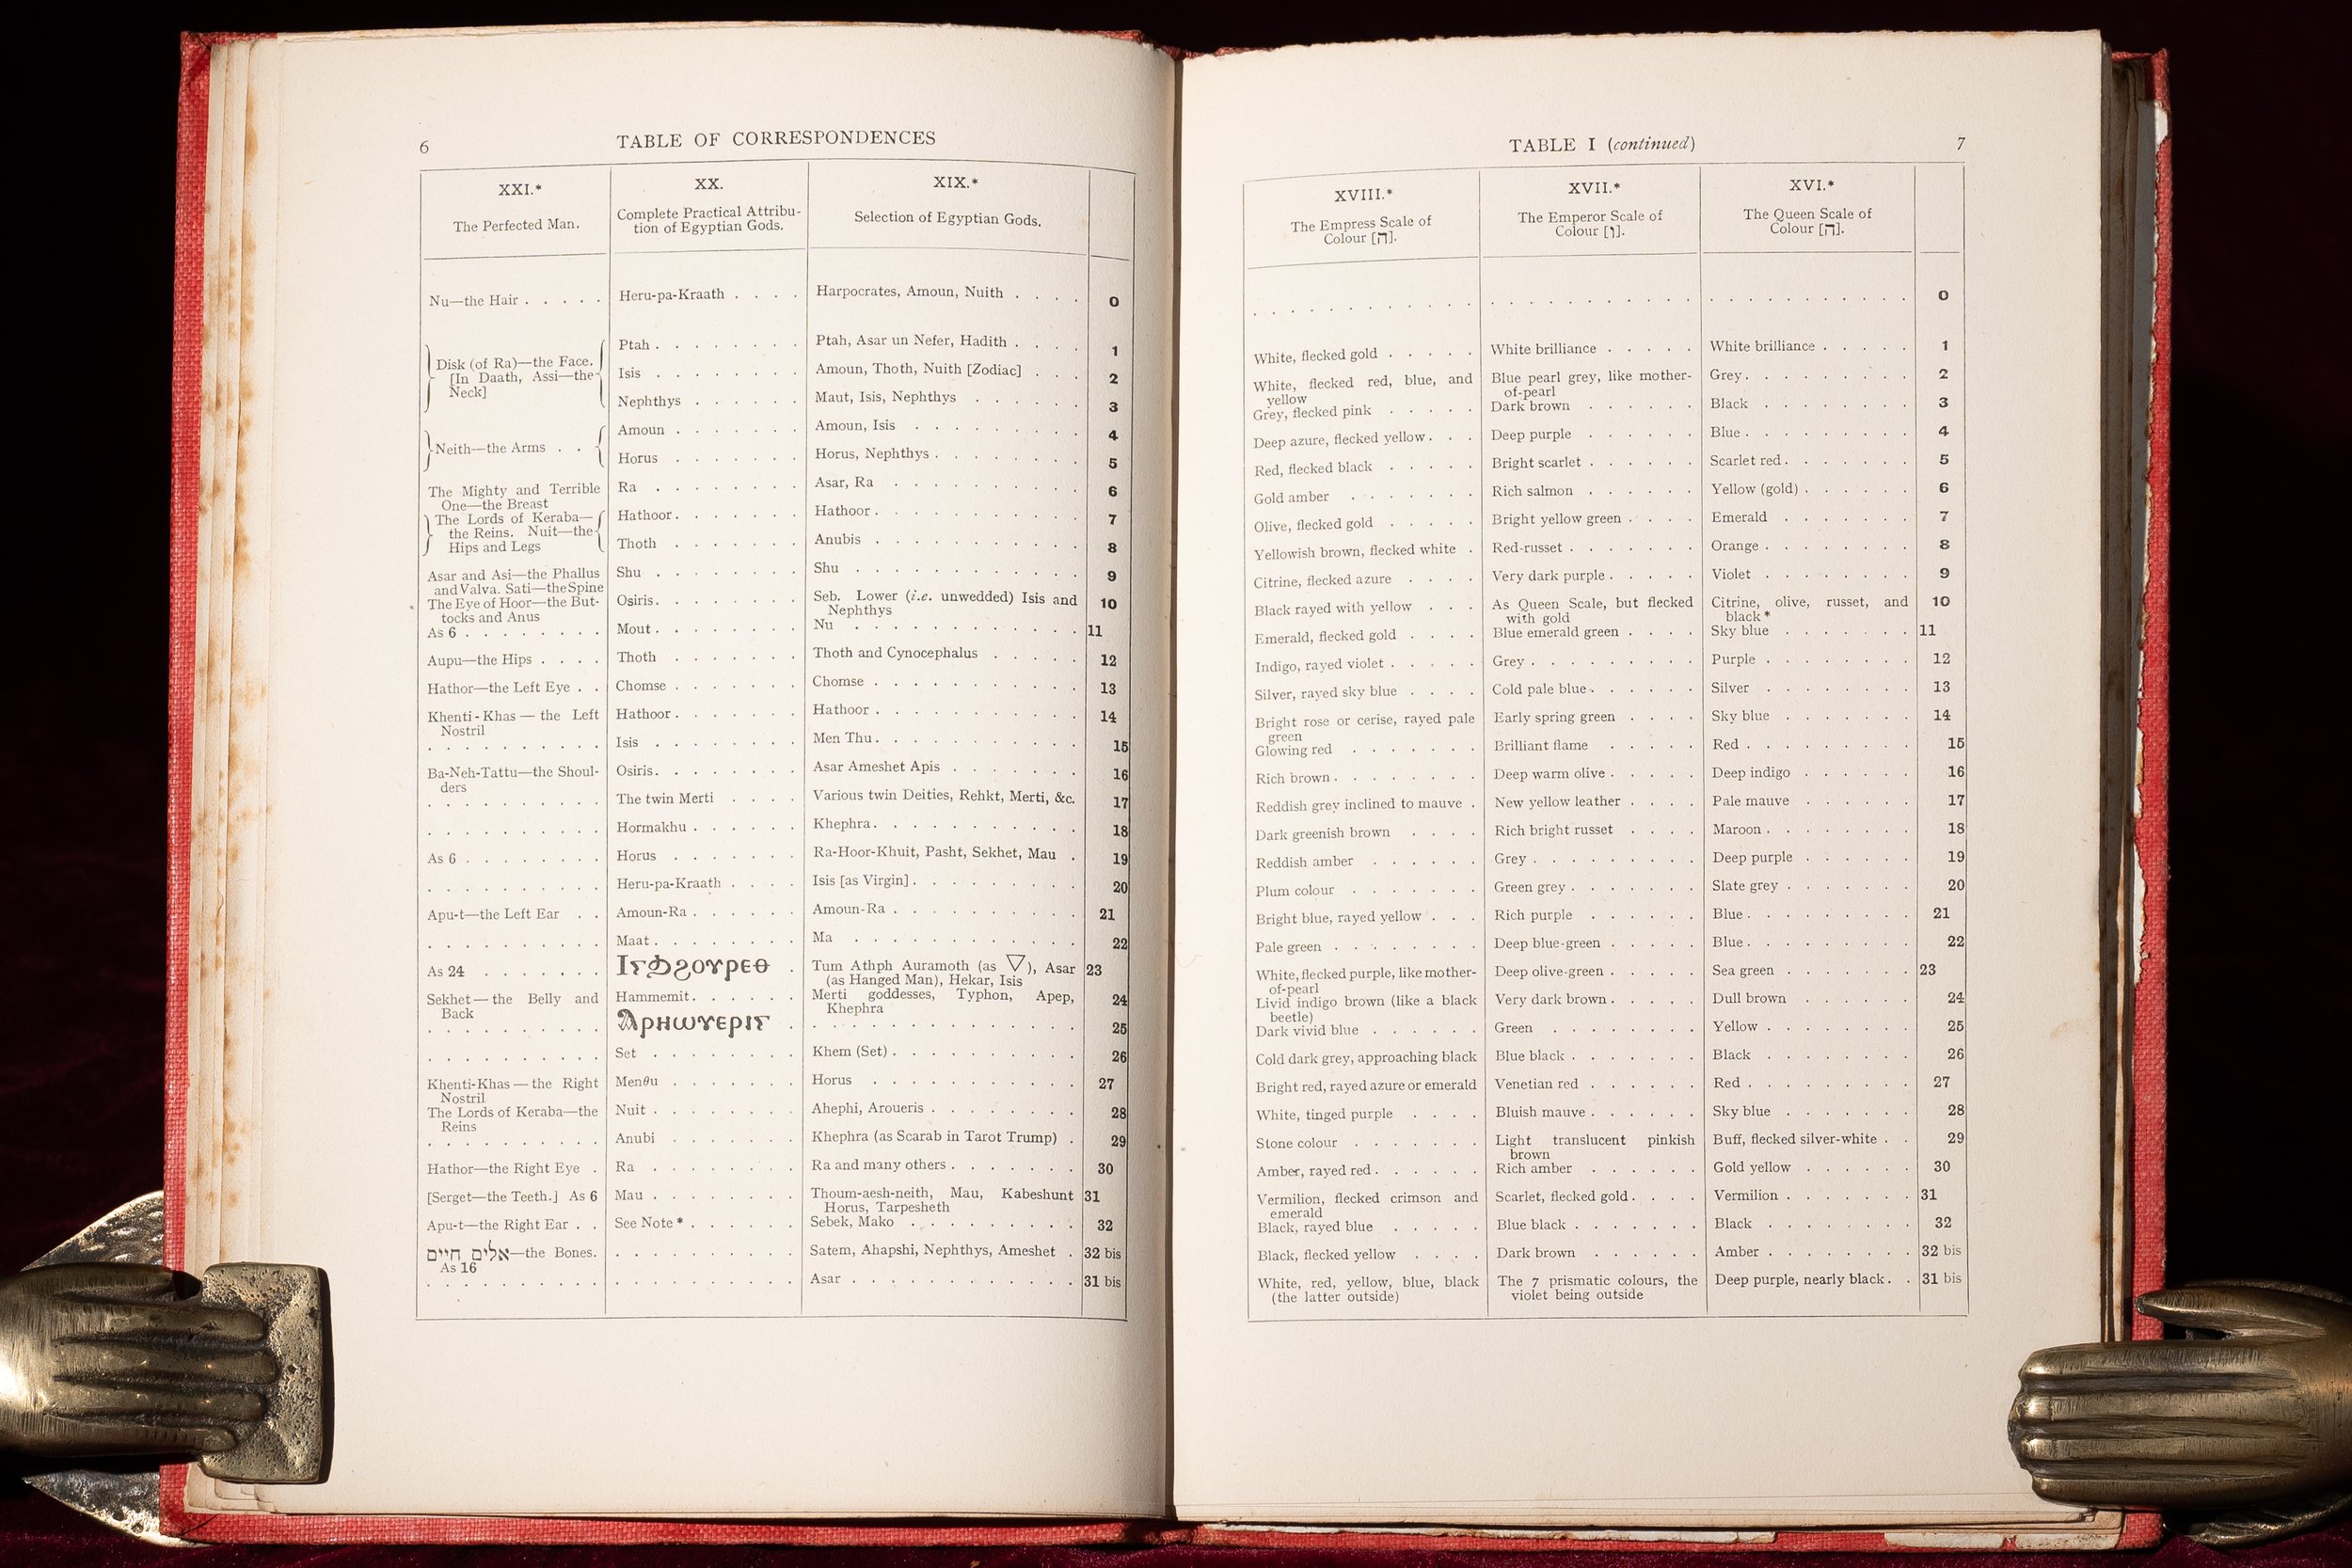 6 TABLE OF CORRESPONDENCES
XXI.* XX. XIX.*
The Perfected Man. Complete Practical Attribu- Selection of Egyptian Gods.
tion of Egyptian Gods.
Nu—the Hair Heru-pa-Kraath Harpocrates, Amoun, Nuith 0
Ptah Ptah, Asar un Nefer, Hadith 1
Disk (of Ra)—the Face. Isis Amoun, Thoth, Nuith [Zodiac] 2
[In Daath, Assi—the
Neck] Nephthys Maut, Isis, Nephthys 3
Amoun Amoun, Isis 4
Neith—the Arms
Horus Horus, Nephthys 5
The Mighty and Terrible Ra Asar, Ra 6
One—the Breast
The Lords of Keraba— Hathoor Hathoor 7
the Reins. Nuit—the
Hips and Legs Thoth Anubis 8
Asar and Asi—the Phallus Shu Shu 9
and Valva. Sati—the Spine
The Eye of Hoor—the But- Osiris Seb. Lower (i.e. unwedded) Isis and 10
tocks and Anus Nephthys
As 6 Mout Nu 11
Aupu—the Hips Thoth Thoth and Cynocephalus 12
Hathor—the Left Eye Chomse Chomse 13
Khenti-Khas — the Left Hathoor Hathoor 14
Nostril
Isis Men Thu 15
Ba-Neh-Tattu—the Shoul- Osiris Asar Ameshet Apis 16
ders
The twin Merti Various twin Deities, Rehkt, Merti, &c. 17
Hormakhu Khephra 18
As 6 Horus Ra-Hoor-Khuit, Pasht, Sekhet, Mau 19
Heru-pa-Kraath Isis [as Virgin] 20
Apu-t—the Left Ear Amoun-Ra Amoun-Ra 21
Maat Ma 22
As 24 Tum Athph Auramoth (as ▽), Asar 23
(as Hanged Man), Hekar, Isis
Sekhet — the Belly and Hammemit Merti goddesses, Typhon, Apep, 24
Back Khephra
25
Set Khem (Set) 26
Khenti-Khas — the Right Menθu Horus 27
Nostril
The Lords of Keraba—the Nuit Ahephi, Aroueris 28
Reins
Anubi Khephra (as Scarab in Tarot Trump) 29
Hathor—the Right Eye Ra Ra and many others 30
[Serget—the Teeth.] As 6 Mau Thoum-aesh-neith, Mau, Kabeshunt 31
Horus, Tarpesheth
Apu-t—the Right Ear See Note * Sebek, Mako 32
אלים חיים—the Bones. Satem, Ahapshi, Nephthys, Ameshet 32 bis
As 16
Asar 31 bis
TABLE I (continued) 7
XVIII.* XVII.* XVI.*
The Empress Scale of The Emperor Scale of The Queen Scale of
Colour [ה]. Colour [ו]. Colour [ה].
0
White, flecked gold White brilliance White brilliance 1
White, flecked red, blue, and Blue pearl grey, like mother- Grey 2
yellow of-pearl
Grey, flecked pink Dark brown Black 3
Deep azure, flecked yellow Deep purple Blue 4
Red, flecked black Bright scarlet Scarlet red 5
Gold amber Rich salmon Yellow (gold) 6
Olive, flecked gold Bright yellow green Emerald 7
Yellowish brown, flecked white Red-russet Orange 8
Citrine, flecked azure Very dark purple Violet 9
Black rayed with yellow As Queen Scale, but flecked Citrine, olive, russet, and 10
with gold black *
Emerald, flecked gold Blue emerald green Sky blue 11
Indigo, rayed violet Grey Purple 12
Silver, rayed sky blue Cold pale blue Silver 13
Bright rose or cerise, rayed pale Early spring green Sky blue 14
green
Glowing red Brilliant flame Red 15
Rich brown Deep warm olive Deep indigo 16
Reddish grey inclined to mauve New yellow leather Pale mauve 17
Dark greenish brown Rich bright russet Maroon 18
Reddish amber Grey Deep purple 19
Plum colour Green grey Slate grey 20
Bright blue, rayed yellow Rich purple Blue 21
Pale green Deep blue-green Blue 22
White, flecked purple, like mother- Deep olive-green Sea green 23
of-pearl
Livid indigo brown (like a black Very dark brown Dull brown 24
beetle)
Dark vivid blue Green Yellow 25
Cold dark grey, approaching black Blue black Black 26
Bright red, rayed azure or emerald Venetian red Red 27
White, tinged purple Bluish mauve Sky blue 28
Stone colour Light translucent pinkish Buff, flecked silver-white 29
brown
Amber, rayed red Rich amber Gold yellow 30
Vermilion, flecked crimson and Scarlet, flecked gold Vermilion 31
emerald
Black, rayed blue Blue black Black 32
Black, flecked yellow Dark brown Amber 32 bis
White, red, yellow, blue, black The 7 prismatic colours, the Deep purple, nearly black 31 bis
(the latter outside) violet being outside